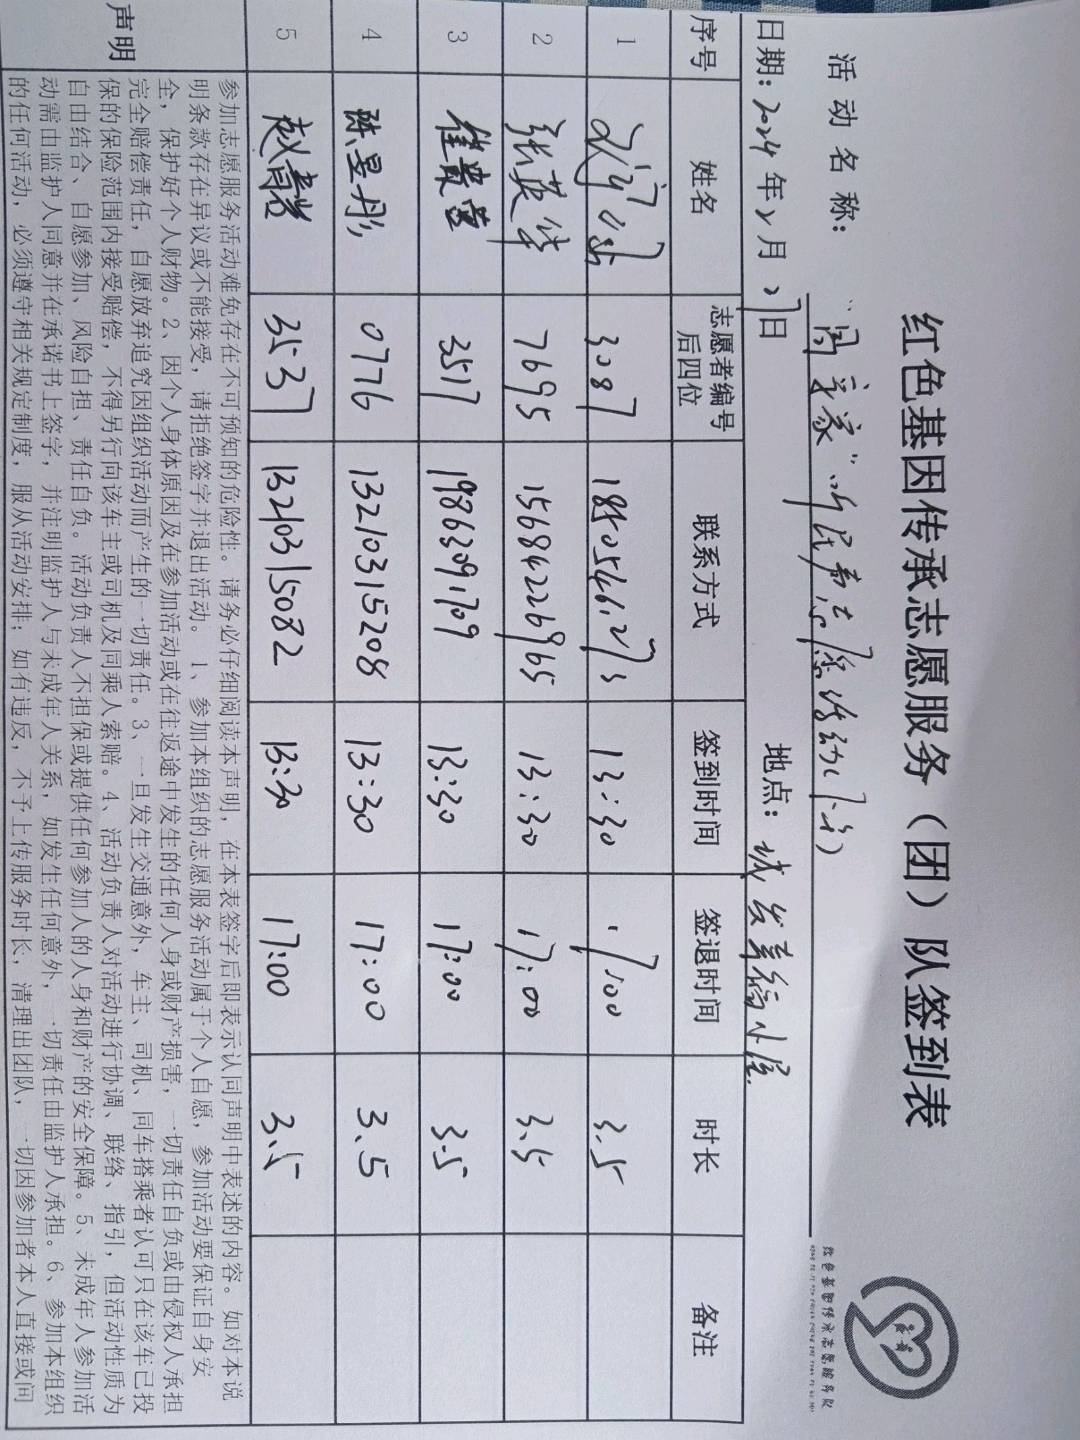 红色基因传承志愿服务（团）队签到表
红色基因传承志愿服务队
活动名称：
日期：2024年2月27日 地点：
序号 姓名 志愿者编号后四位 联系方式 签到时间 签退时间 时长 备注
1 3087 13:30 17:00 3.5
2 张英华 7695 15684226965 13:30 17:00 3.5
3 崔贵莹 3517 19863091709 13:30 17:00 3.5
4 陈昱彤 0776 13210315208 13:30 17:00 3.5
5 3537 13210315082 13:30 17:00 3.5
声明
参加志愿服务活动难免存在不可预知的危险性。请务必仔细阅读本声明，在本表签字后即表示认同声明中表述的内容。如对本说
明条款存在异议或不能接受，请拒绝签字并退出活动。1、参加本组织的志愿服务活动属于个人自愿，参加活动要保证自身安
全，保护好个人财物。2、因个人身体原因及在参加活动或在往返途中发生的任何人身或财产损害，一切责任自负或由侵权人承担
完全赔偿责任，自愿放弃追究因组织活动而产生的一切责任。3、一旦发生交通意外，车主、司机、同车搭乘者认可只在该车已投
保的保险范围内接受赔偿，不得另行向该车主或司机及同乘人索赔。4、活动负责人对活动进行协调、联络、指引，但活动性质为
自由结合、自愿参加、风险自担、责任自负。活动负责人不担保或提供任何参加人的人身和财产的安全保障。5、未成年人参加活
动需由监护人同意并在承诺书上签字，并注明监护人与未成年人关系，如发生任何意外，一切责任由监护人承担。6、参加本组织
的任何活动，必须遵守相关规定制度，服从活动安排；如有违反，不予上传服务时长，清理出团队，一切因参加者本人直接或间